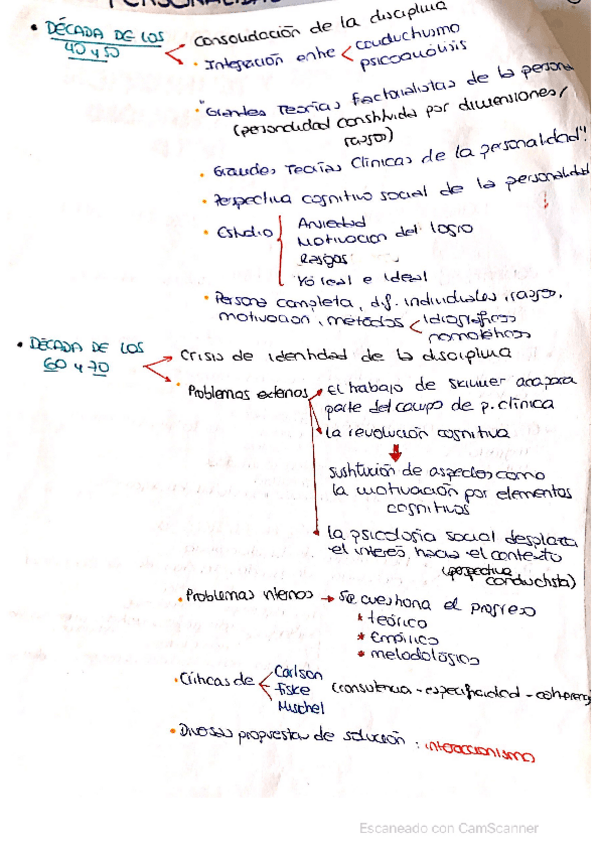 PERSONALIDAD
• DÉCADA DE LOS 40 y 50
Consolidación de la disciplina
• Integración entre < conductismo
psicoanálisis
• "Grandes Teorías Factorialistas de la persona
(personalidad constituida por dimensiones/
rasgos)
• Grandes Teorías Clínicas de la personalidad"
• Perspectiva cognitivo social de la personalidad
• Estudio
Ansiedad
Motivación del logro
Rasgos
Yo real e ideal
• Persona completa, dif. individuales, rasgos,
motivación, métodos < idiográficos
nomotéticos
• DÉCADA DE LOS 60 y 70
Crisis de identidad de la disciplina
• Problemas externos
El trabajo de Skinner acapara
parte del campo de p. clínica
la revolución cognitiva
sustitución de aspectos como
la motivación por elementos
cognitivos
la psicología social desplaza
el interés hacia el contexto
(perspectiva
conductista)
• Problemas internos → Se cuestiona el progreso
* teórico
* Empírico
* metodológico
• Críticas de < Carlson
Fiske (consistencia - especificidad - coherenc
Mischel
• Diversas propuestas de solución : interaccionismo
Escaneado con CamScanner